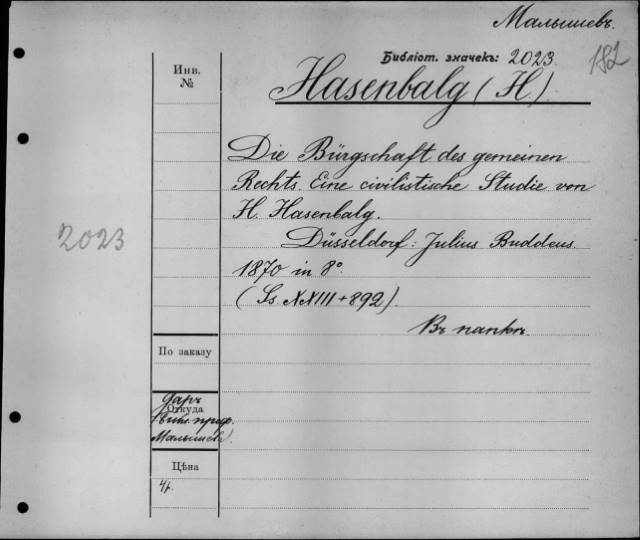 Малышевъ.
Библіот. значекъ: 2023.
182
Инв.
№
Hasenbalg (H.)
Die Bürgschaft des gemeinen
Rechts. Eine civilistische Studie von
H. Hasenbalg.
2023
Düsseldorf: Julius Buddeus.
1870 in 8°.
(Ss. XXIII+892).
Въ папкѣ.
По заказу
Даръ
Откуда
проф.
Малышева.
Цѣна
4р.